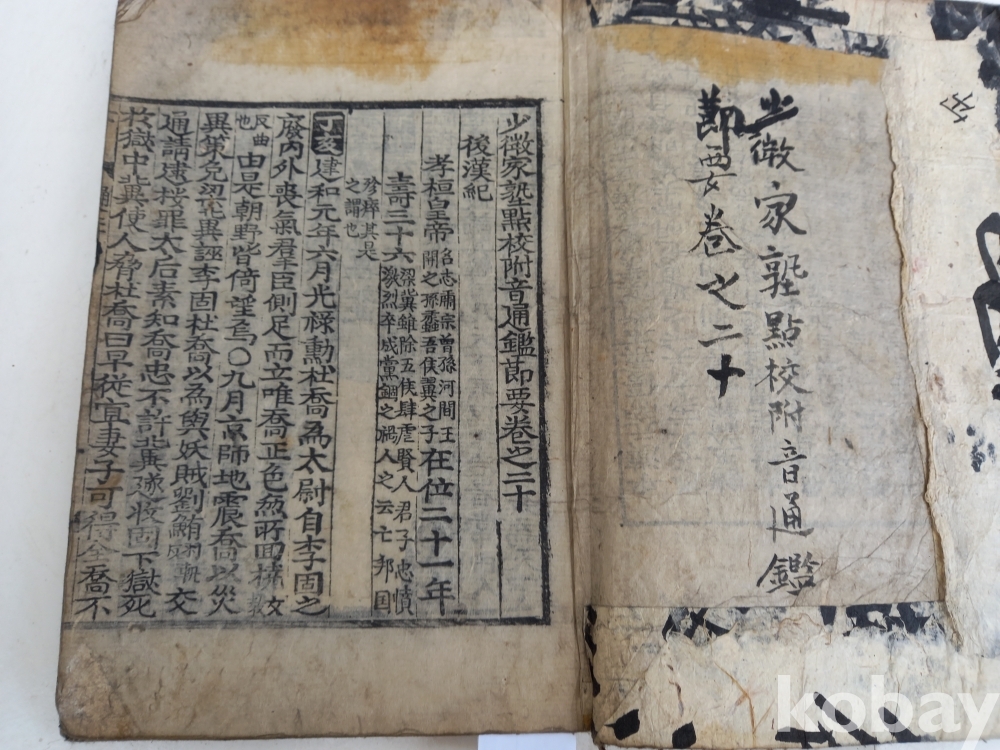 少微家塾點校附音通鑑
節要卷之二十
少微家塾點校附音通鑑節要卷之二十
後漢紀
孝桓皇帝 名志肅宗曾孫河間王開之孫蠡吾侯翼之子在位二十一年
壽三十六 梁冀雖除五侯肆虐賢人君子忠憤激烈卒成黨錮之禍人之云亡邦國
殄瘁其是之謂也
丁亥建和元年六月光祿勳杜喬為太尉自李固之
廢內外喪氣羣臣側足而立唯喬正色無所回橈
也由是朝野皆倚望焉○九月京師地震喬以災
異策免梁冀誣李固杜喬以為與妖賊劉鮪交
通請逮按罪太后素知喬忠不許冀遂收固下獄死
於獄中冀使人脅杜喬曰早從宜妻子可得全喬不
kobay